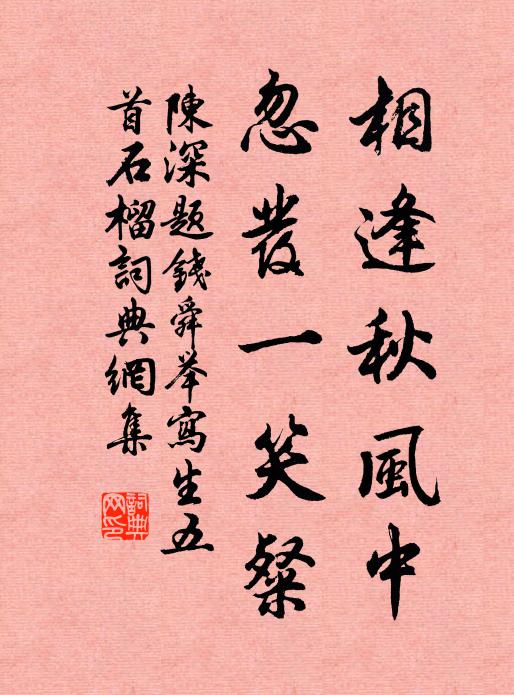 相逢秋風中
忽發一笑粲
陳深题錢舜举寫生五
首石榴詞典網集
詞典網印